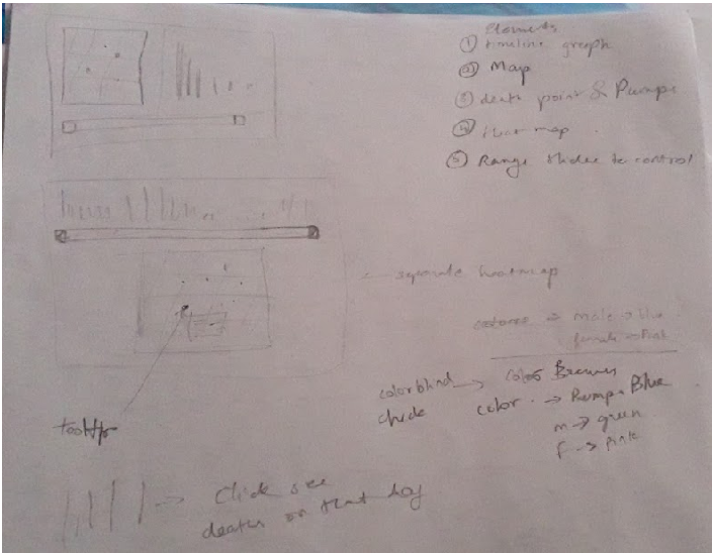 Elements
① timeline graph
② Map
③ death point & Pumps
④ Heat map
⑤ Range slider to control
separate heatmap
colores → male → blue
female → Pink
colorblind → Color Brewer
check color → Pump → Blue
m → green
f → pink
tooltip
→ Click see
deaths on that day